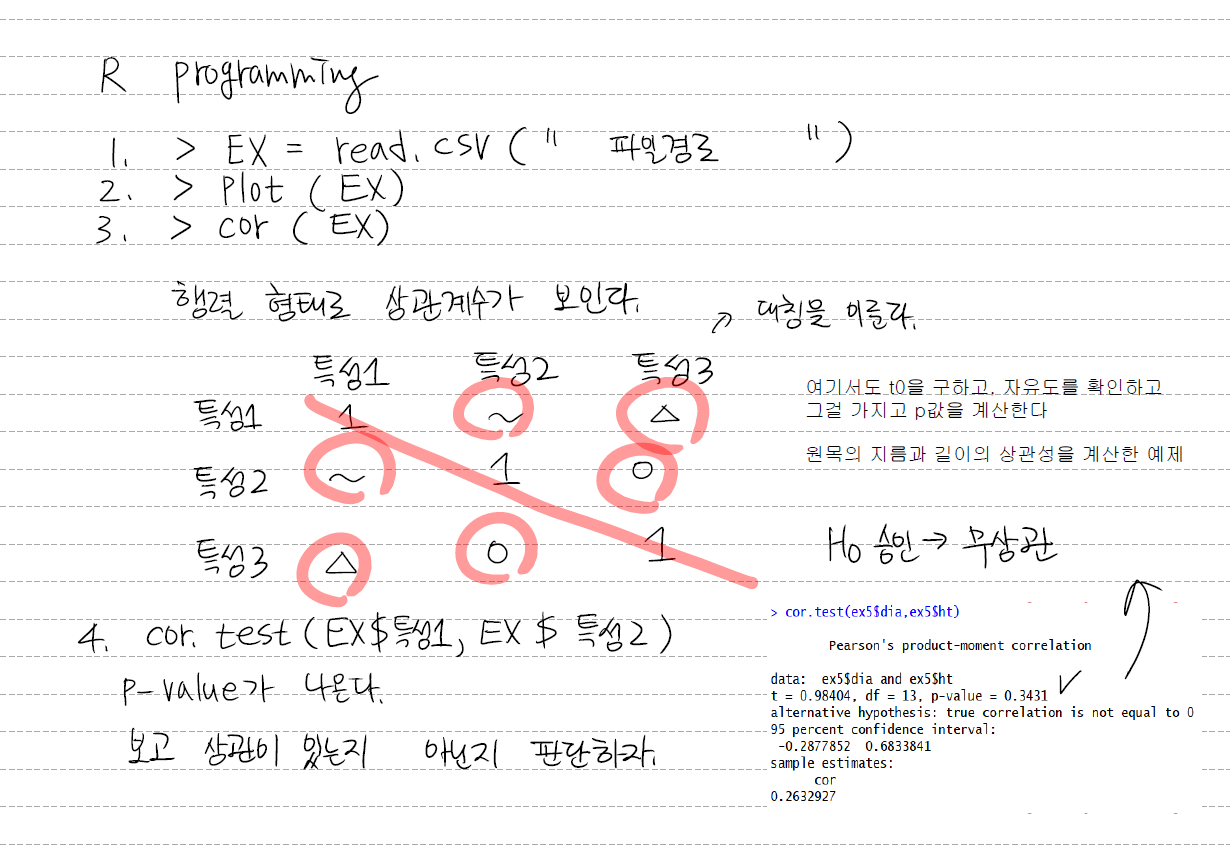 R programming
1. > EX = read.csv (" 파일경로 ")
2. > Plot ( EX)
3. > cor ( EX)
행렬 형태로 상관계수가 보인다.
↗ 대칭을 이룬다.
특성1 특성2 특성3
특성1 1 ~ △
특성2 ~ 1 O
특성3 △ O 1
여기서도 t0을 구하고, 자유도를 확인하고
그걸 가지고 p값을 계산한다
원목의 지름과 길이의 상관성을 계산한 예제
H0 승인 → 무상관
4. cor. test (EX$특성1, EX $ 특성2 )
P-value가 나온다.
보고 상관이 있는지 아닌지 판단하자.
> cor.test(ex5$dia,ex5$ht)
Pearson's product-moment correlation
data: ex5$dia and ex5$ht
t = 0.98404, df = 13, p-value = 0.3431
alternative hypothesis: true correlation is not equal to 0
95 percent confidence interval:
-0.2877852 0.6833841
sample estimates:
cor
0.2632927